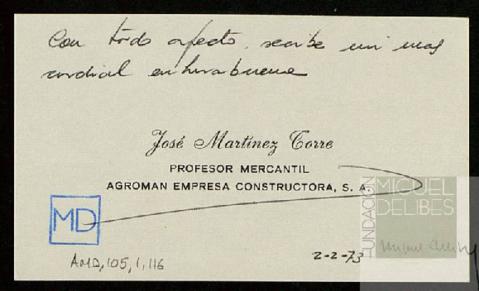 Con todo afecto, recibe mi mas
cordial enhorabuena
José Martínez Torre
PROFESOR MERCANTIL
AGROMAN EMPRESA CONSTRUCTORA, S. A.
MD
AMD,105,1,116
2-2-73
FUNDACIÓN
MIGUEL
DELIBES